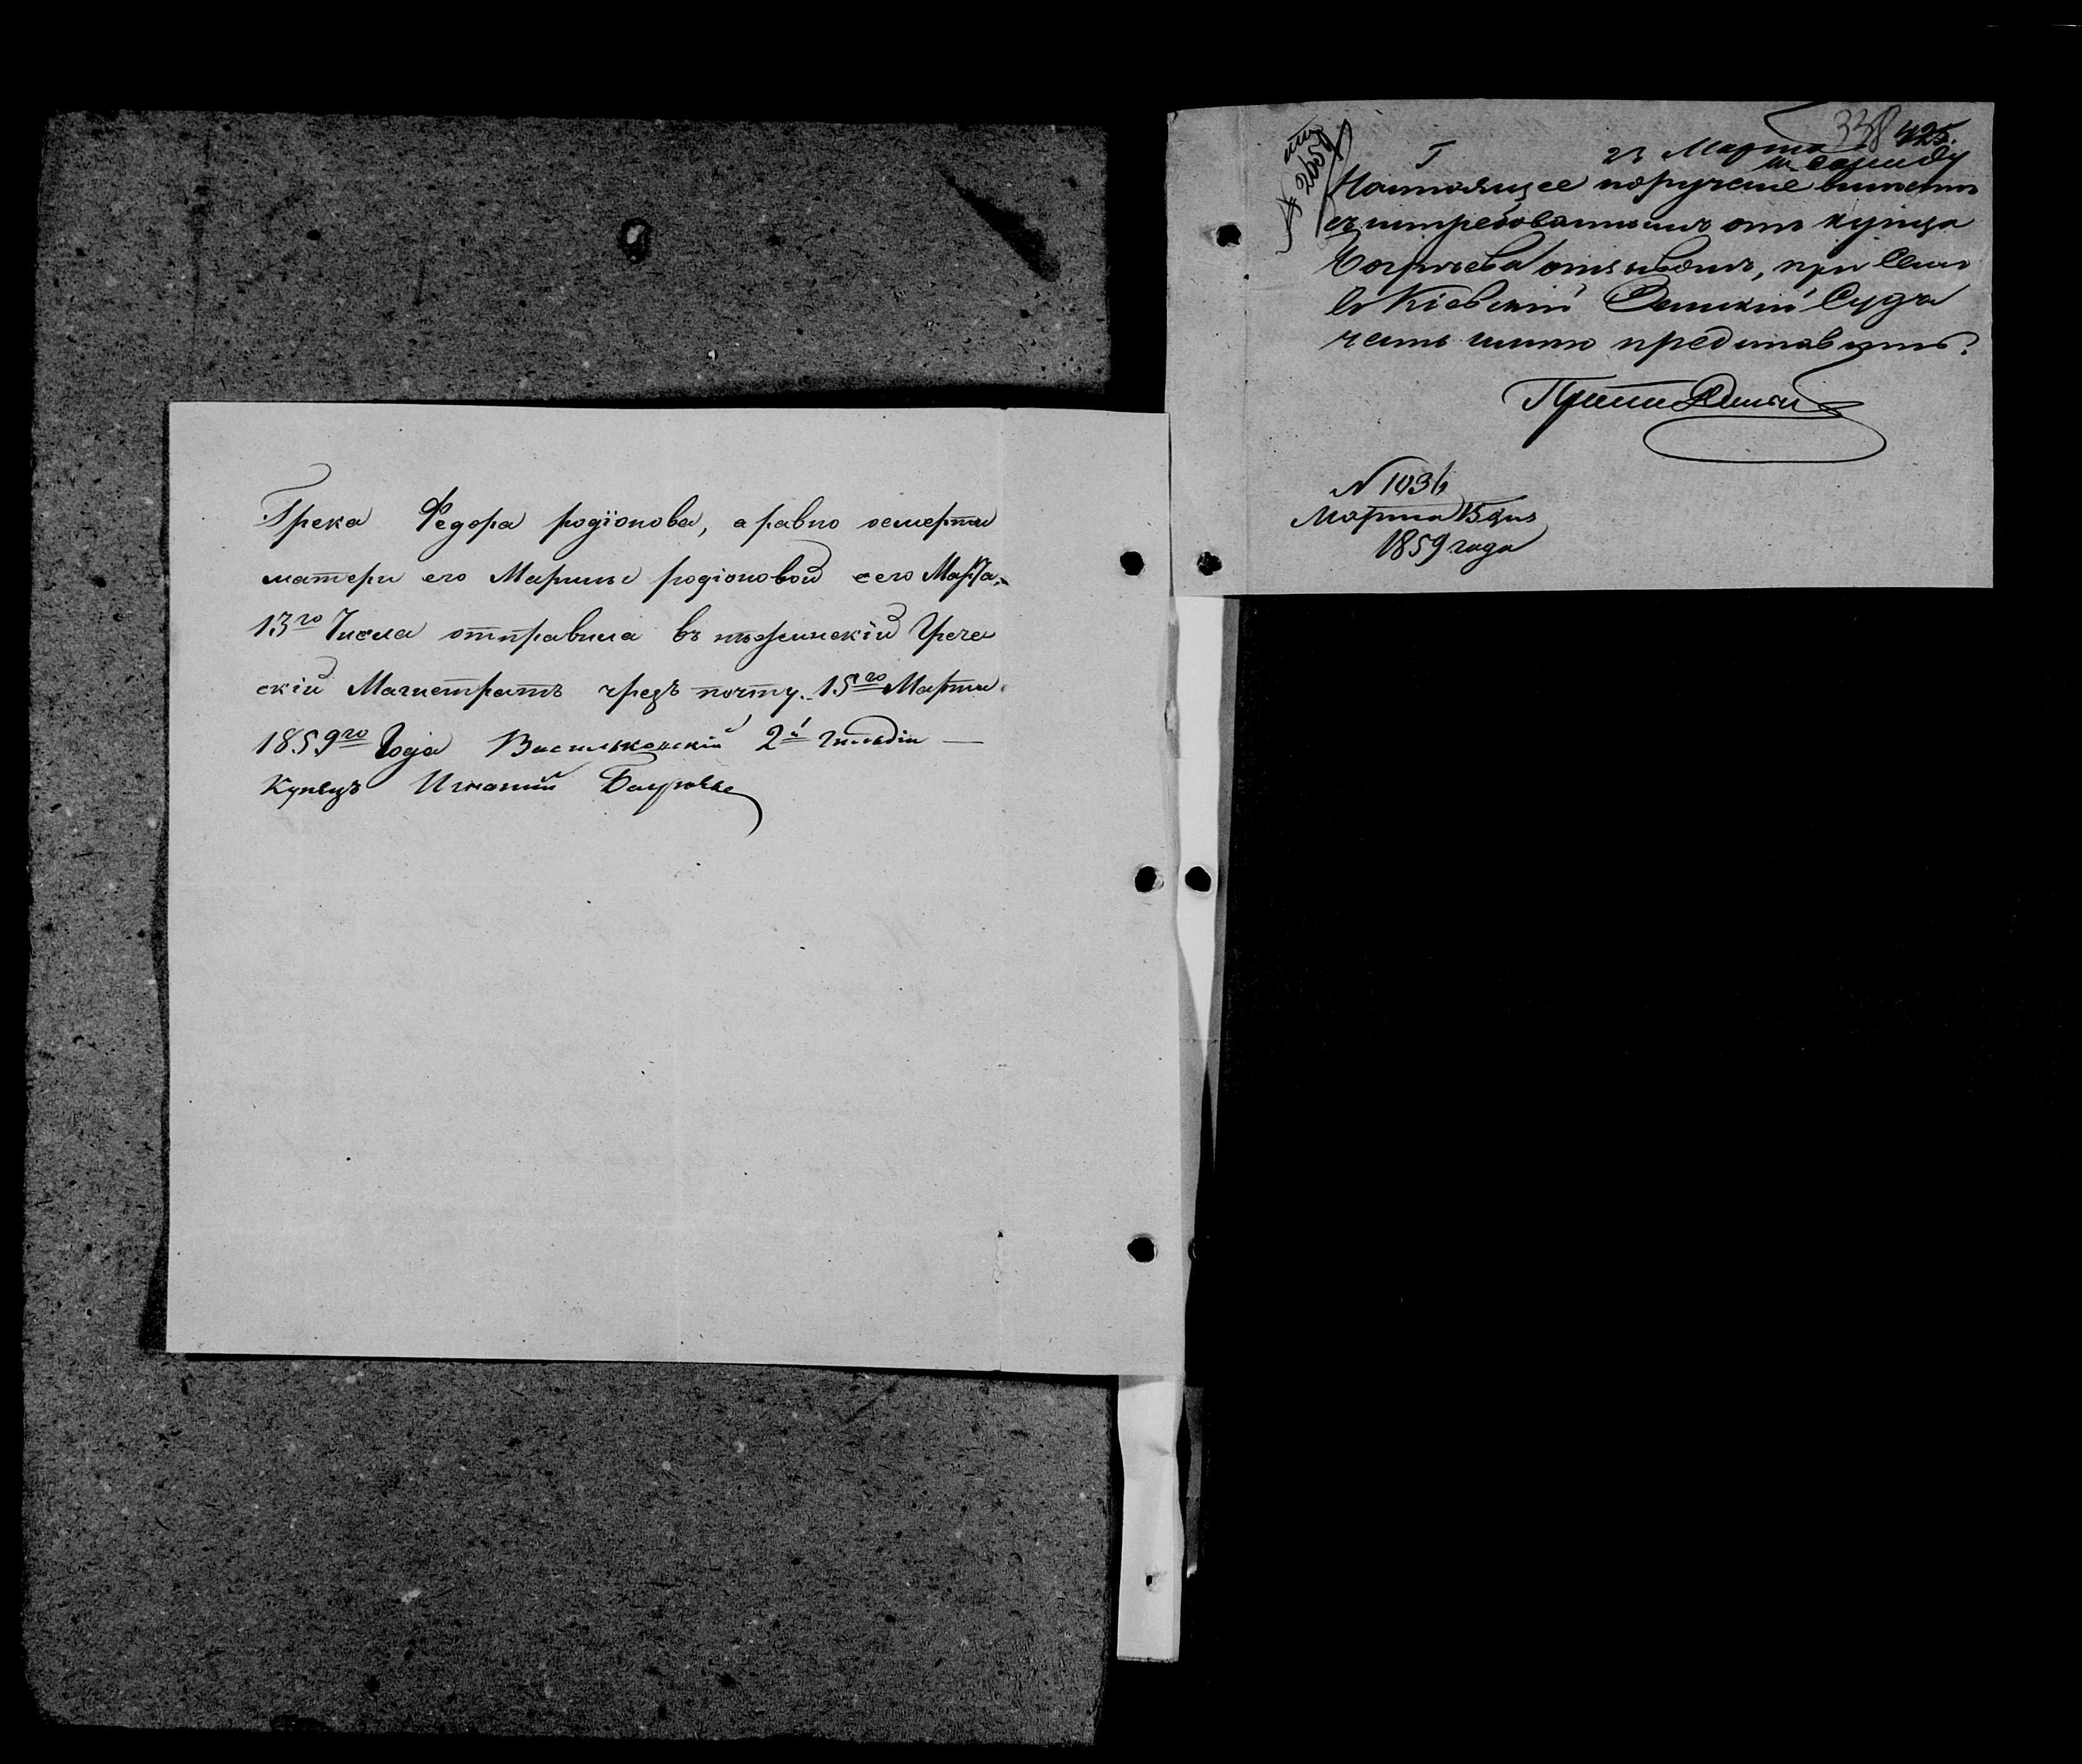 Грека Федора родіонова, а равно осмерти
матери его Марины родіоновой сего Марта
13го Числа отправила въ нѣжинскій Грече
скій Магистратъ чрезъ почту. 15го Марта
1859го Года Васильковскій 2й Гильдіи —
Купецъ Игнатий
338 425.
№ 2059
23 Марта
Настоящее порученіе вмѣстѣ
съ истребованнымъ отъ купца
отзывомъ, при семъ
въ Кіевскій Земскій Судъ
честь имѣю представить.
N 1036
Марта 15 дня
1859 года